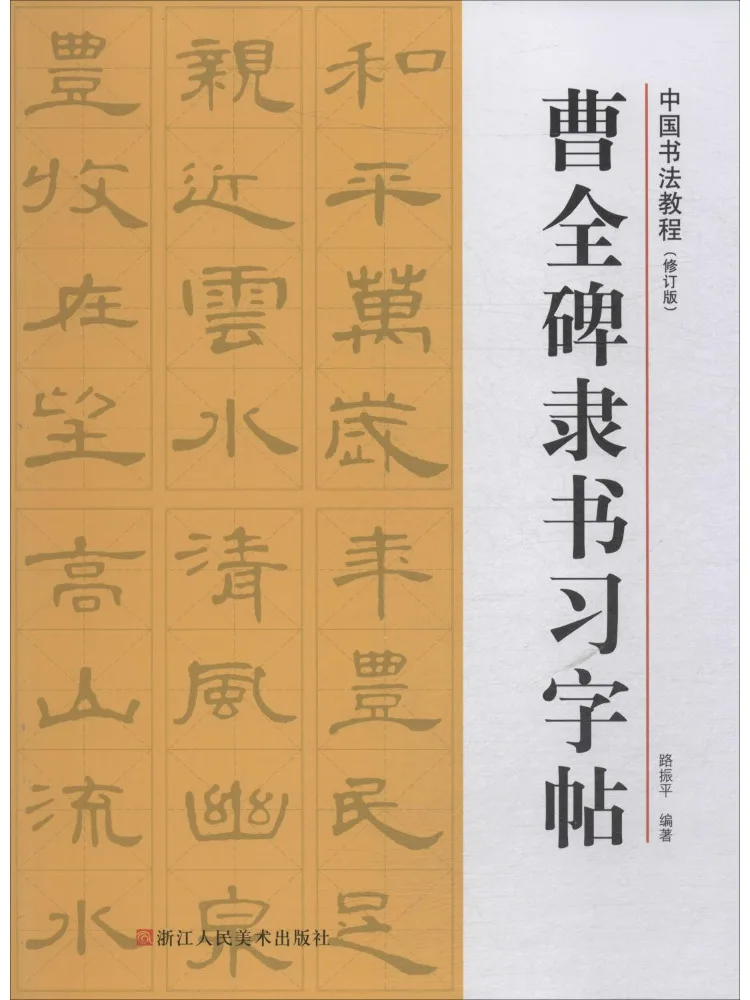 中国书法教程（修订版）
路振平 编著
曹全碑隶书习字帖
和平萬歲
年豊民足
親近雲水
清風幽泉
豊收在望
高山流水
浙江人民美术出版社